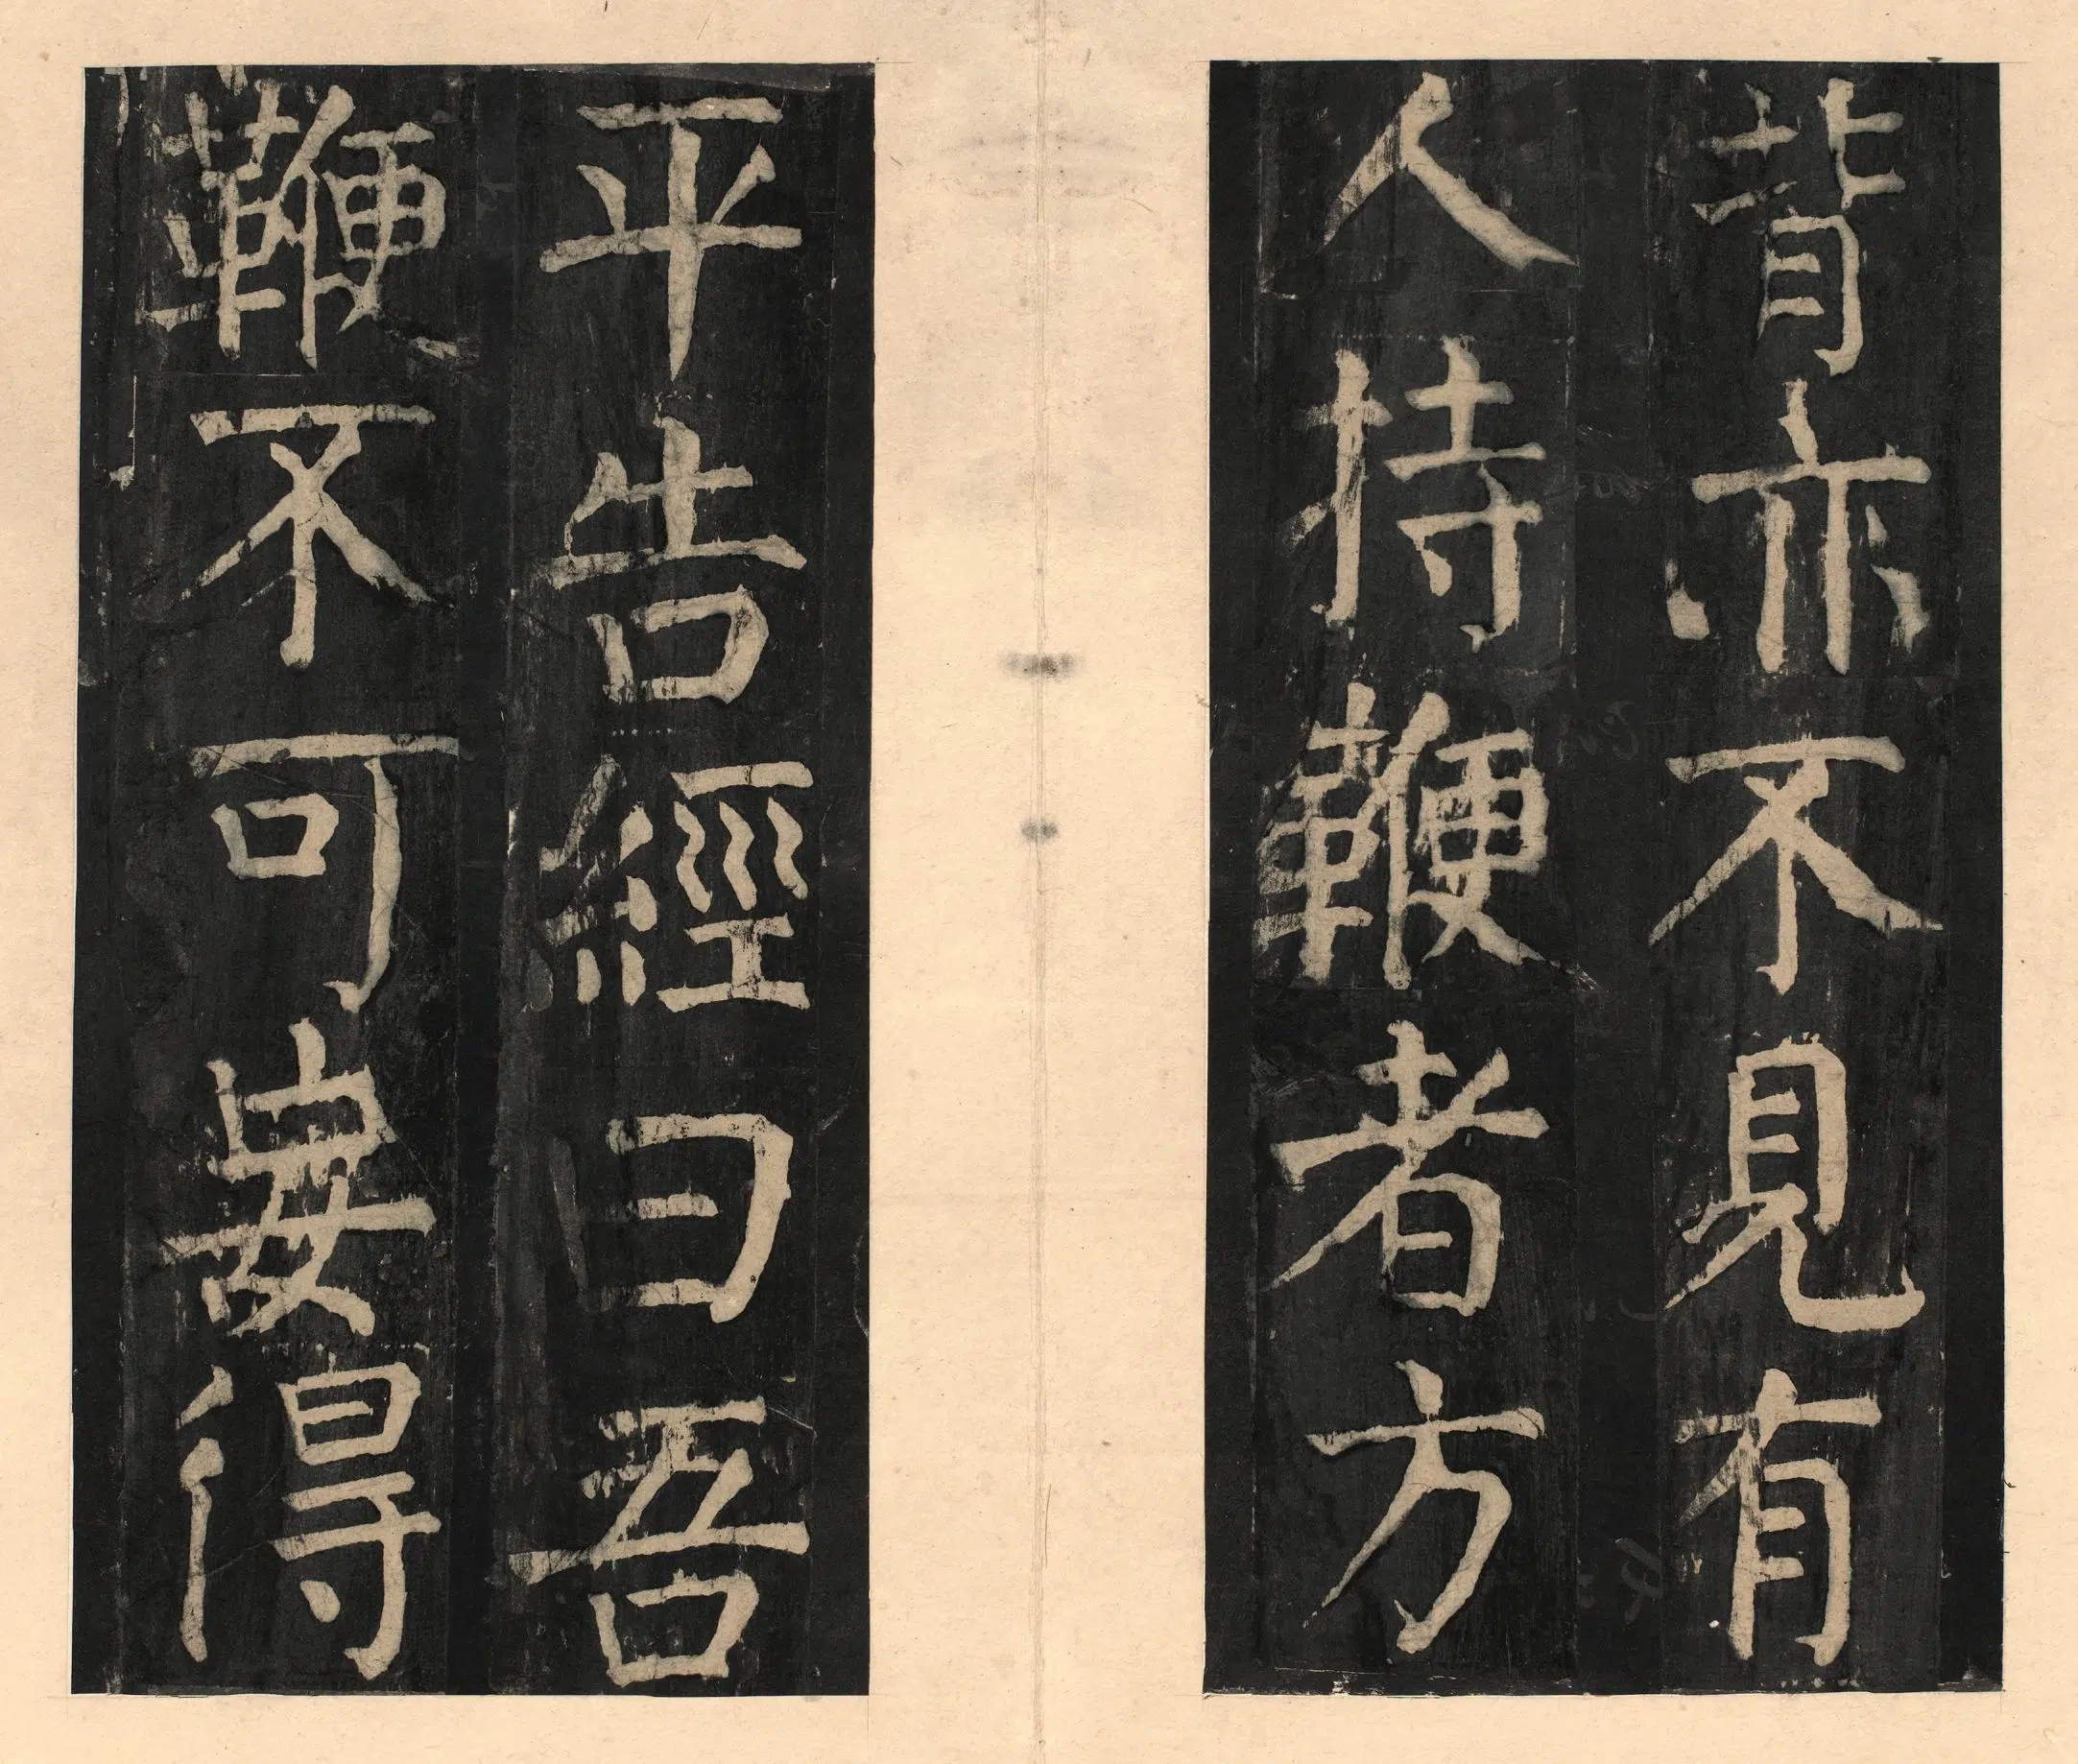 背亦不見有
人持鞭者方
平告經曰吾
鞭不可妄得